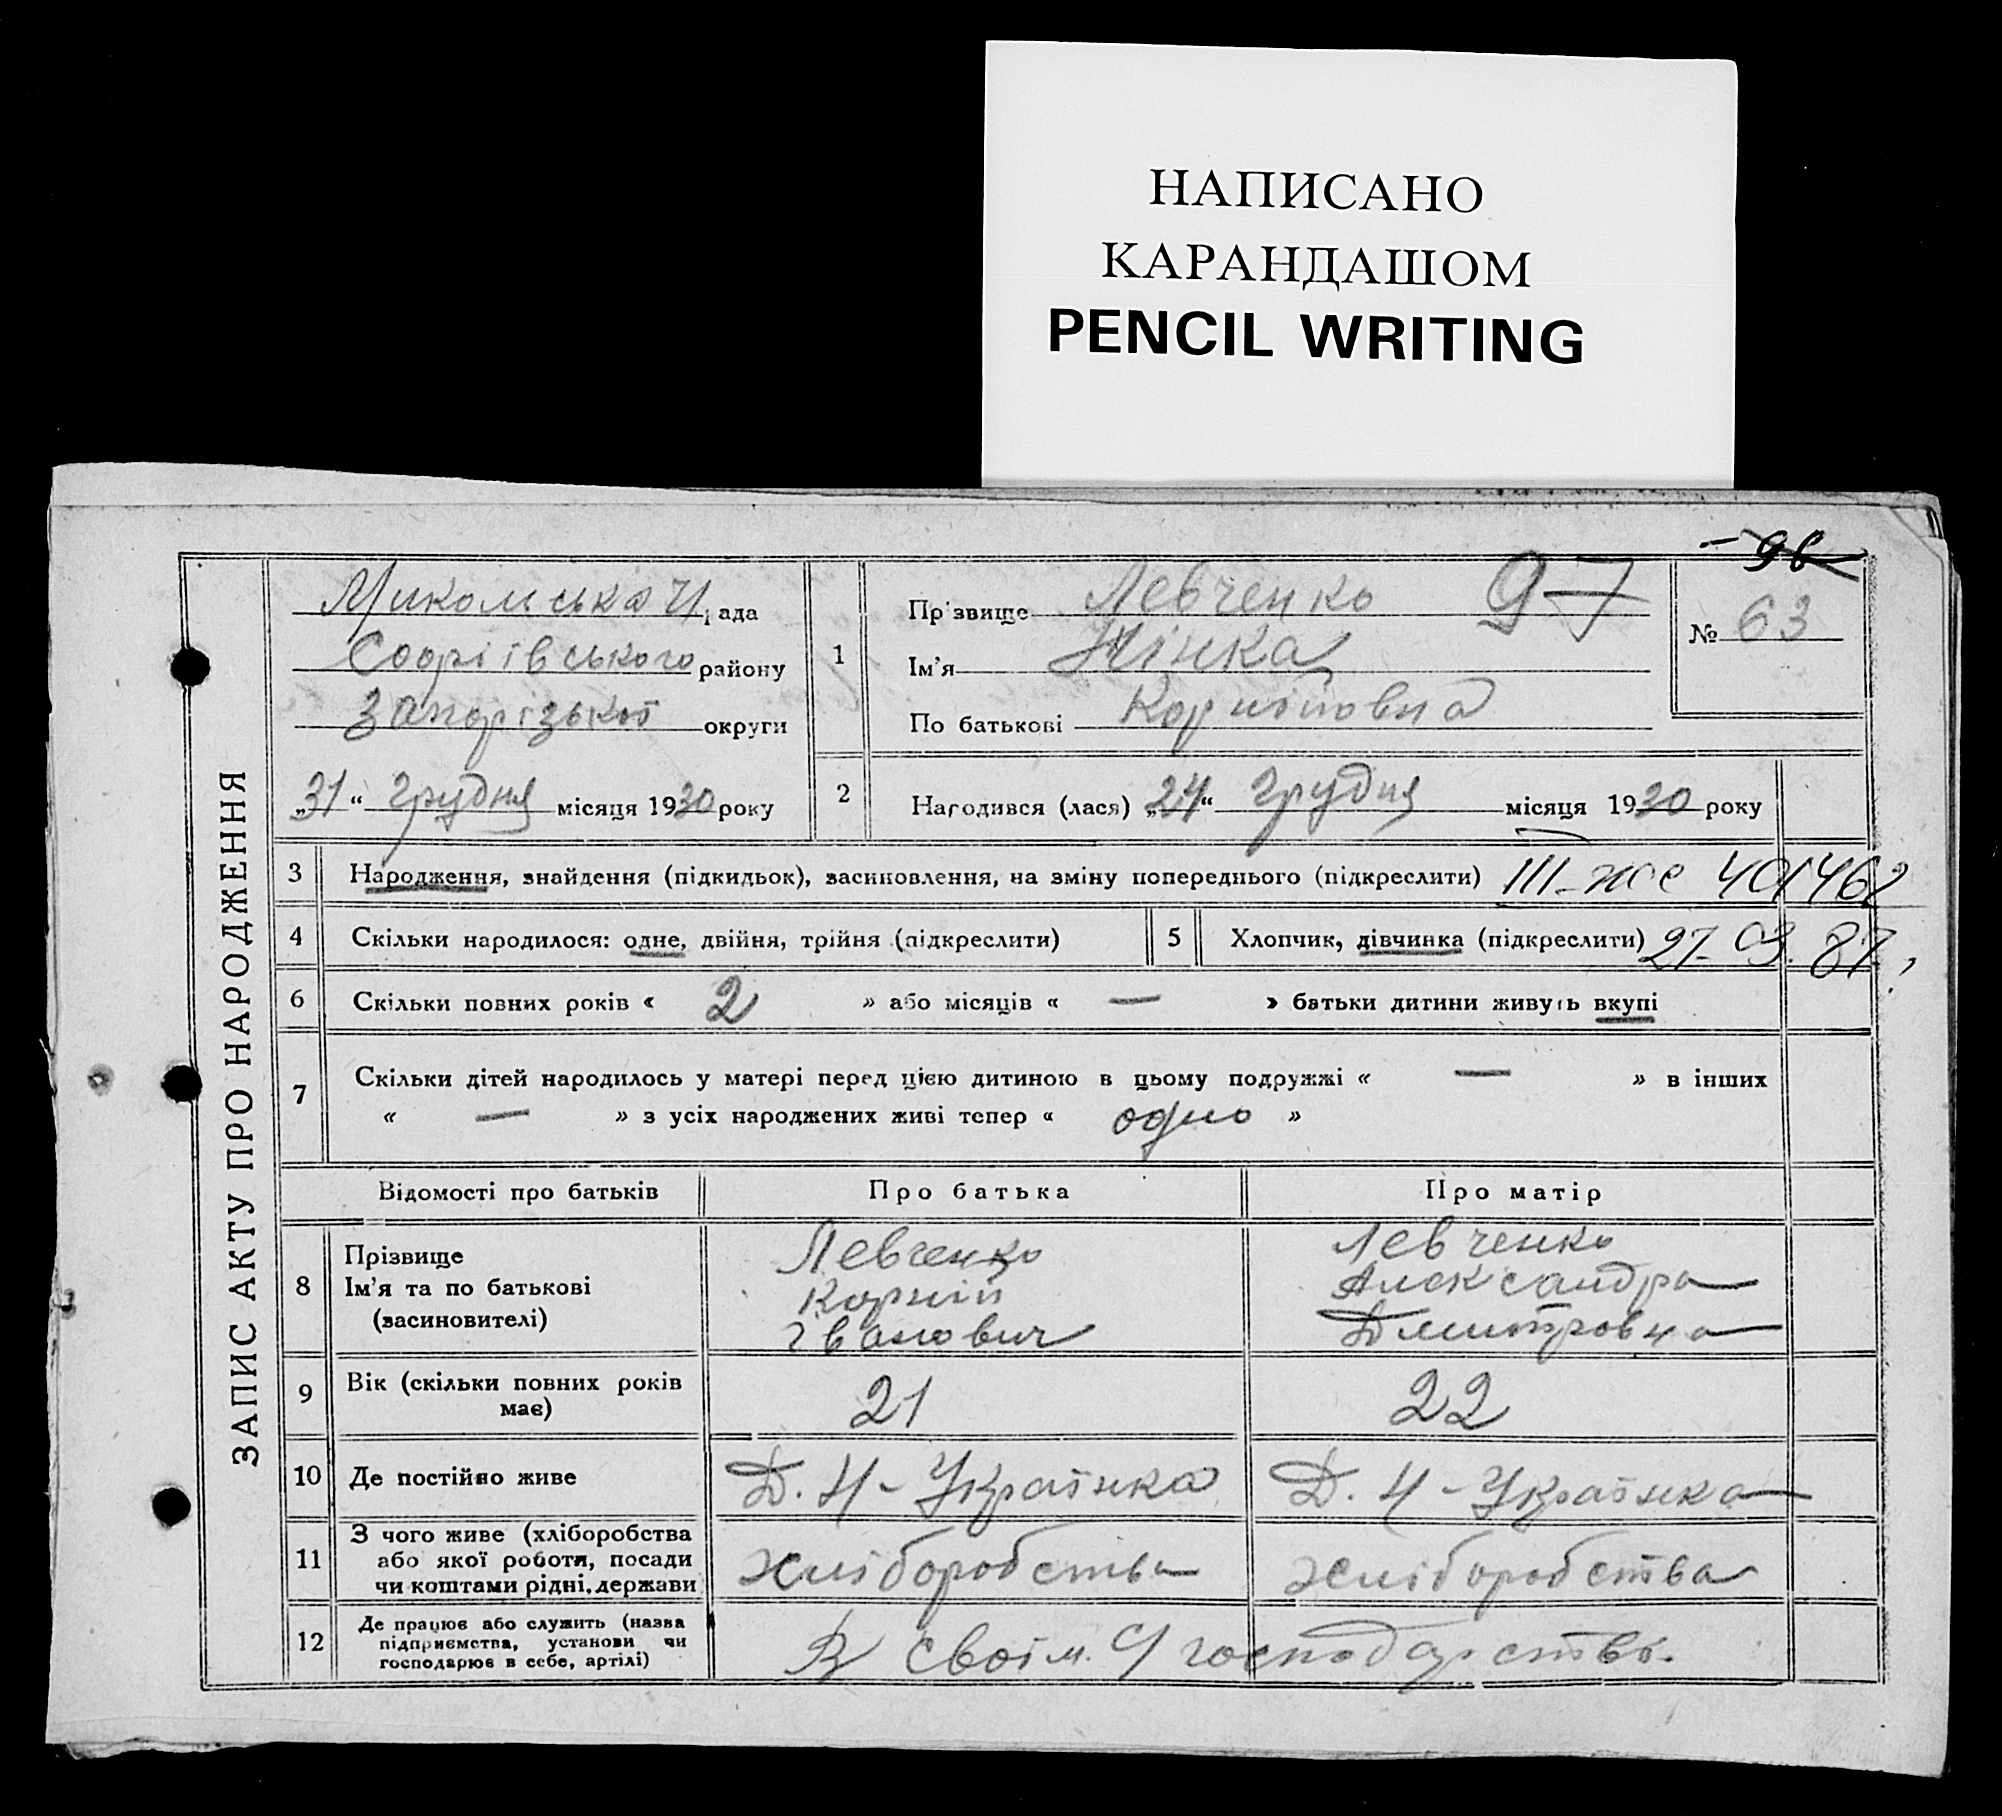 НАПИСАНО
КАРАНДАШОМ
PENCIL WRITING
ЗАПИС АКТУ ПРО НАРОДЖЕННЯ
рада
району
Запорізької округи
„31“ Грудня місяця 1930 року
1
Прізвище Левченко 97
Ім'я Нінка
По батькові
96
№ 63
2
Народився (лася) „24“ Грудня місяця 1930 року
3 Народження, знайдення (підкидьок), засиновлення, на зміну попереднього (підкреслити) III-же 401462
4 Скільки народилося: одне, двійня, трійня (підкреслити) 5 Хлопчик, дівчинка (підкреслити) 27.03.87
6 Скільки повних років « 2 » або місяців « — » батьки дитини живуть вкупі
7 Скільки дітей народилось у матері перед цією дитиною в цьому подружжі « — » в інших
« — » з усіх народжених живі тепер « одно »
Відомості про батьків Про батька Про матір
8
Прізвище Левченко Левченко
Ім'я та по батькові Корній Александра
(засиновителі) Іванович Дмитровна
9 Вік (скільки повних років має) 21 22
10 Де постійно живе Д. Н-Українка Д. Н-Українка
11 З чого живе (хліборобства
або якої роботи, посади
чи коштами рідні, держави
хліборобства хліборобства
12 Де працює або служить (назва
підприємства, установи чи
господарює в себе, артілі)
В своім господарстві.